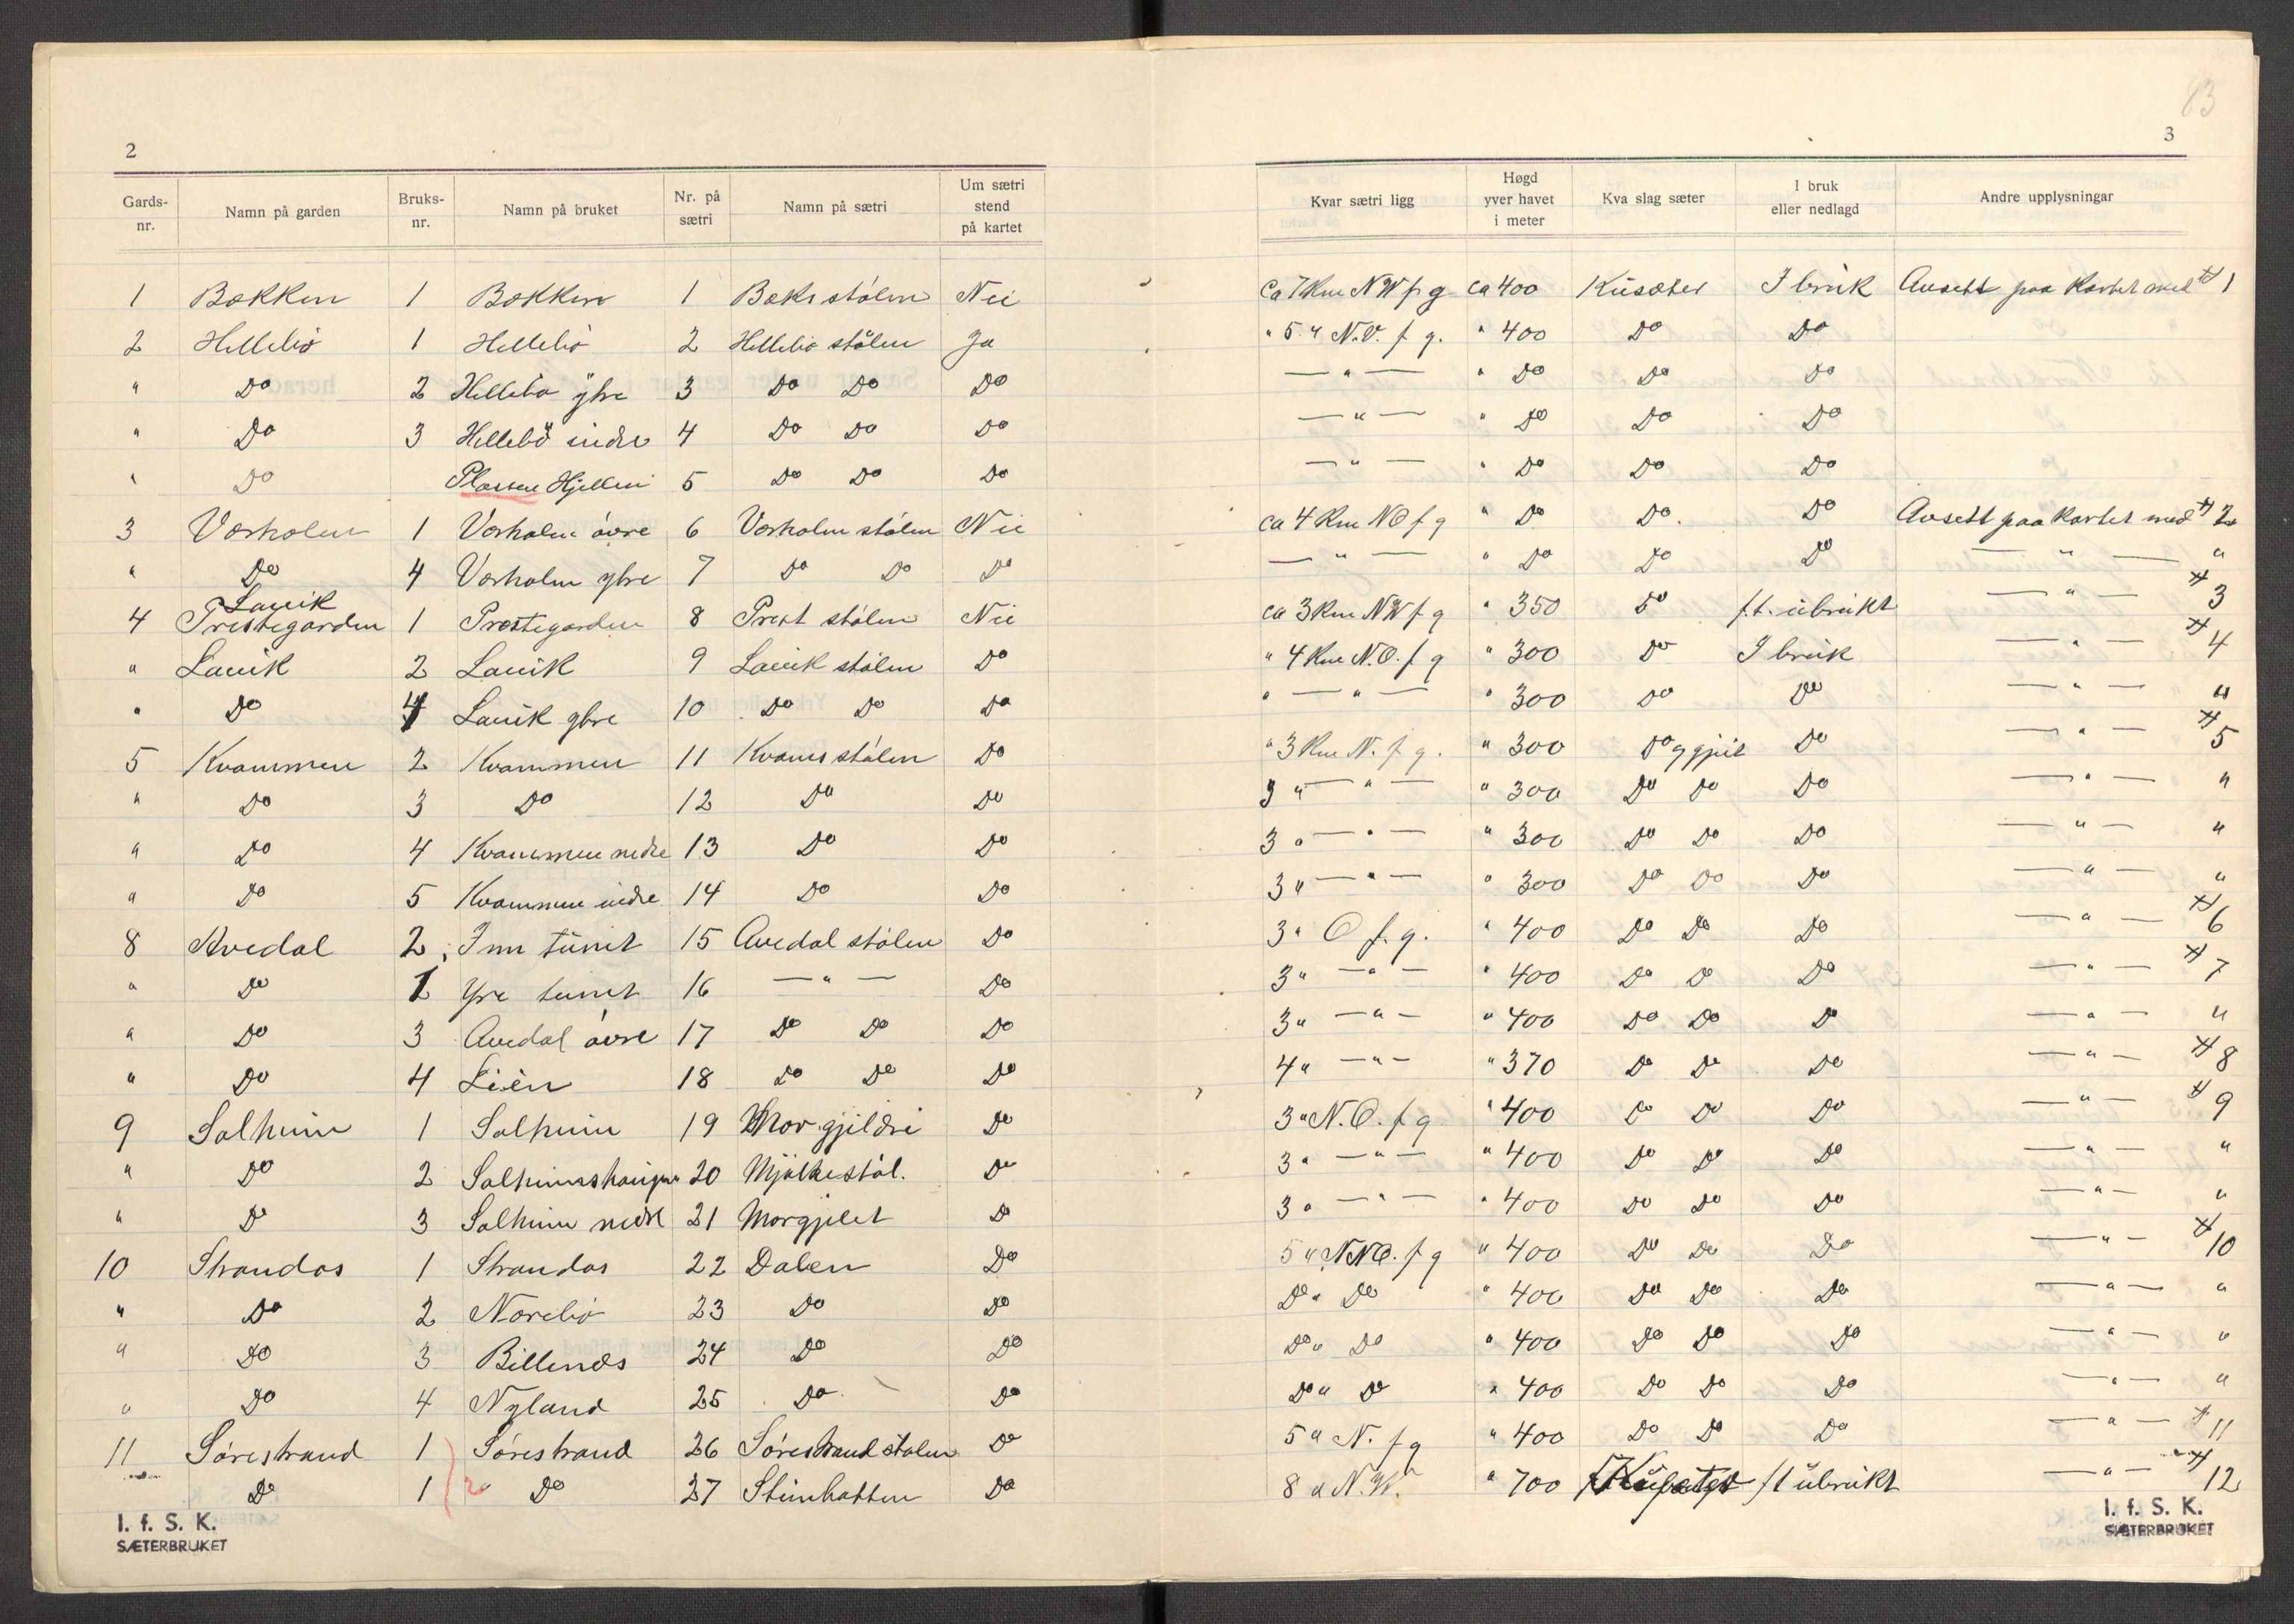 83
2
3
Gards-nr. Namn på garden Bruks-nr. Namn på bruket Nr. på sætri Namn på sætri Um sætri stend på kartet Kvar sætri ligg Høgd yver havet i meter Kva slag sæter I bruk eller nedlagd Andre upplysningar
1 Bøkken 1 Bøkken 1 Bøks stólen Nei Ca 7 Km NW f g ca 400 Kusæter I bruk Avsett paa kartet med # 1
2 Hellebö 1 Hellebö 2 Hellebö stölen Ja " 5 " N.O. f g. " 400 Do Do
" Do 2 Hellebö ytre 3 Do Do Do — " — " Do Do Do
" Do 3 Hellebö indre 4 Do Do Do — " — " Do Do Do
" Do Plassen Hjellen 5 Do Do Do — " — " Do Do Do
3 Værholm 1 Værholm óvre 6 Værholm stólen Nei ca 4 Km NO f g " Do Do. Do Avsett paa kartet med # 2
" Do 4 Værholm ytre 7 Do Do Do — " — " Do Do Do — " — "
4 Lavik Prestegarden 1 Prestegarden 8 Prest stólen Nei ca 3 Km NW f g " 350 Do f.t. ubrukt — " — # 3
" Lavik 2 Lavik 9 Lavik stólen Do " 4 Km N.O. f g " 300 Do I bruk — " — # 4
" Do 4 Lavik ytre 10 Do Do Do " — " — " 300 Do Do — " — "
5 Kvammen 2 Kvammen 11 Kvams stólen Do " 3 Km N. f g. " 300 Do g gjeit Do — " — # 5
" Do 3 Do 12 Do Do 3 " — " — " 300 Do Do Do — " — "
" Do 4 Kvammen nedre 13 Do Do 3 " — " — " 300 Do Do Do — " — "
" Do 5 Kvammen indre 14 Do Do 3 " — " — " 300 Do Do Do — " — "
8 Avedal 2 Inn tunet 15 Avedal stólen Do 3 " O f. g. " 400 Do Do Do — " — # 6
" Do 1 Yre tunet 16 — " — Do 3 " — " — " 400 Do Do Do — " — # 7
" Do 3 Avedal óvre 17 Do Do Do 3 " — " — " 400 Do Do Do — " — "
" Do 4 Liên 18 Do Do Do 4 " — " — " 370 Do Do Do — " — # 8
9 Solheim 1 Solheim 19 Mor gjildri Do 3 " N.O. f g " 400 Do Do Do — " — # 9
" Do 2 Solheimshaugen 20 Mjólkestól. Do 3 " — " — " 400 Do Do Do — " — "
" Do 3 Solheim nedre 21 Morgjelet Do 3 " — " — " 400 Do Do Do — " — "
10 Strandos 1 Strandos 22 Dalen Do 5 " NNO. f g " 400 Do Do Do — " — # 10
" Do 2 Norebö 23 Do Do Do " Do " 400 Do Do Do — " — "
" Do 3 Billenes 24 Do Do Do " Do " 400 Do Do Do — " — "
" Do 4 Nyland 25 Do Do Do " Do " 400 Do Do Do — " — "
11 Sórestrand 1 Sórestrand 26 Sórestrand stolen Do 5 " N. f g " 400 Do Do Do — " — # 11
Do 1 Do 27 Steinhatten Do 8 " N.W. " 700 Kusæter f t ubrukt — " — # 12
I. f. S. K.
SÆTERBRUKET
I. f. S. K.
SÆTERBRUKET